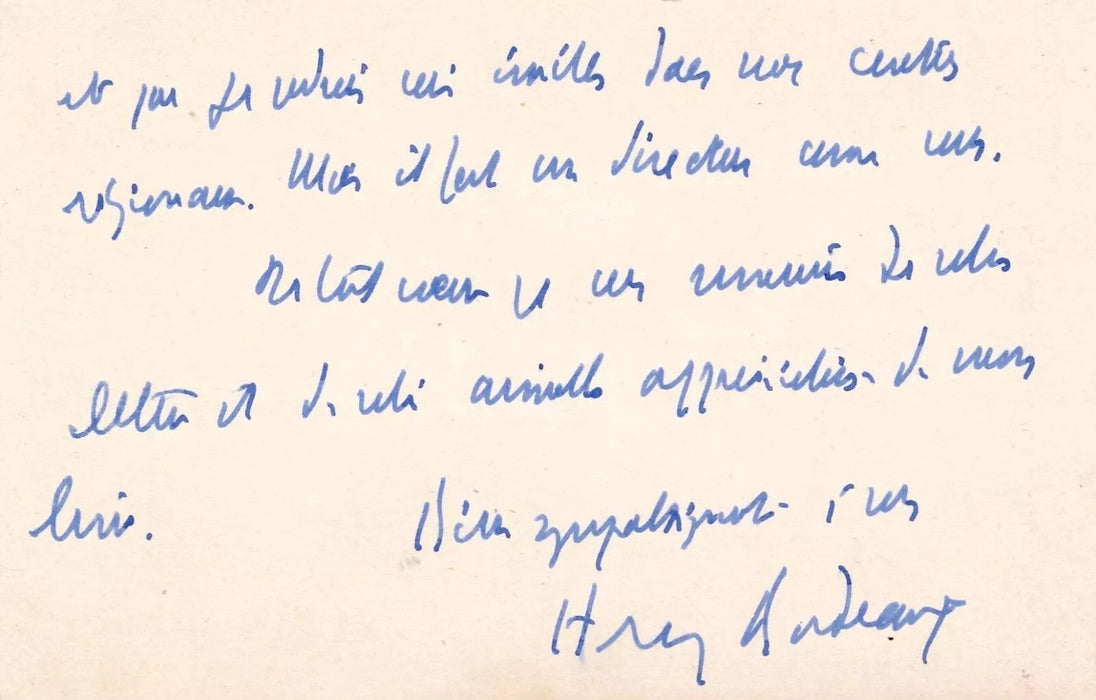 et que je voudrais voir imités dans nos comités
régionaux. Mais il faut un directeur comme vous.
de tout cœur je vous remercie de votre
lettre et de votre amicale appréciation de mon
livre. Bien sympathiquement à vous
Henry Bordeaux